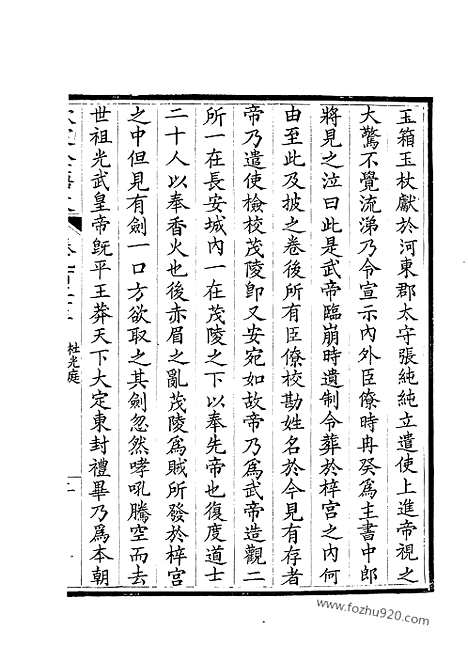 玉箱玉杖獻於河東郡太守張純純立遣使上進帝視之
大驚不覺流涕乃令宣示內外臣僚時冉癸爲主書中郎
將見之泣曰此是武帝臨崩時遺制令葬於梓宮之內何
由至此及披之卷後所有臣僚校勘姓名於今見有存者
帝乃遣使檢校茂陵卽又安宛如故帝乃爲武帝造觀二
所一在長安城內一在茂陵之下以奉先帝也復度道士
二十人以奉香火也後赤眉之亂茂陵爲賊所發於梓宮
之中但見有劍一口方欲取之其劍忽然哮吼騰空而去
世祖光武皇帝旣平王莽天下大定東封禮畢乃爲本朝
杜光庭
www.fozhu920.com